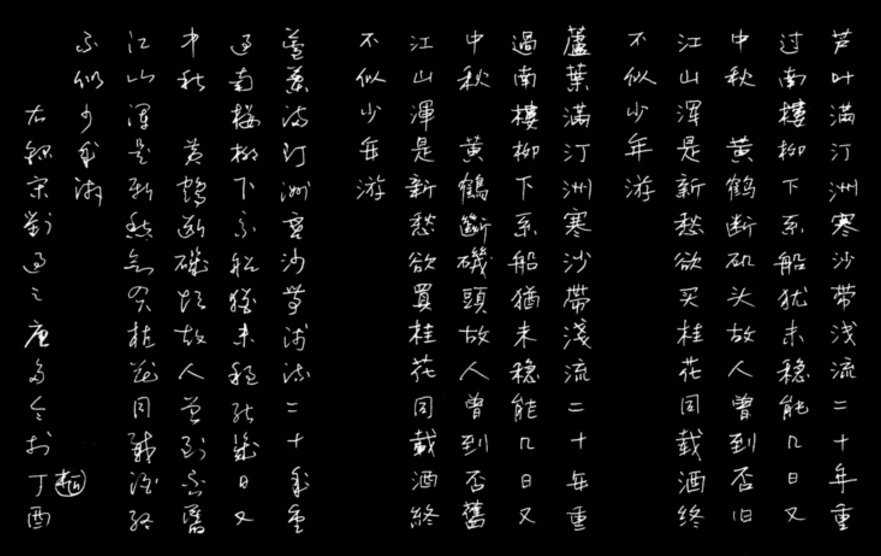 芦叶满汀洲寒沙带浅流二十年重
过南樓柳下系船犹未稳能几日又
中秋 黄鹤断矶头故人曾到否旧
江山浑是新愁欲买桂花同载酒终
不似少年游
蘆葉滿汀洲寒沙帶淺流二十年重
過南樓柳下系船猶未稳能几日又
中秋 黄鶴斷磯頭故人曾到否舊
江山渾是新愁欲買桂花同載酒終
不似少年游
蘆葉滿汀洲寒沙帶淺流二十年重
過南樓柳下系船猶未稳能幾日又
中秋 黄鶴斷磯頭故人曾到否舊
江山渾是新愁欲買桂花同載酒終
不似少年游
右録宋劉過之唐多令於丁酉